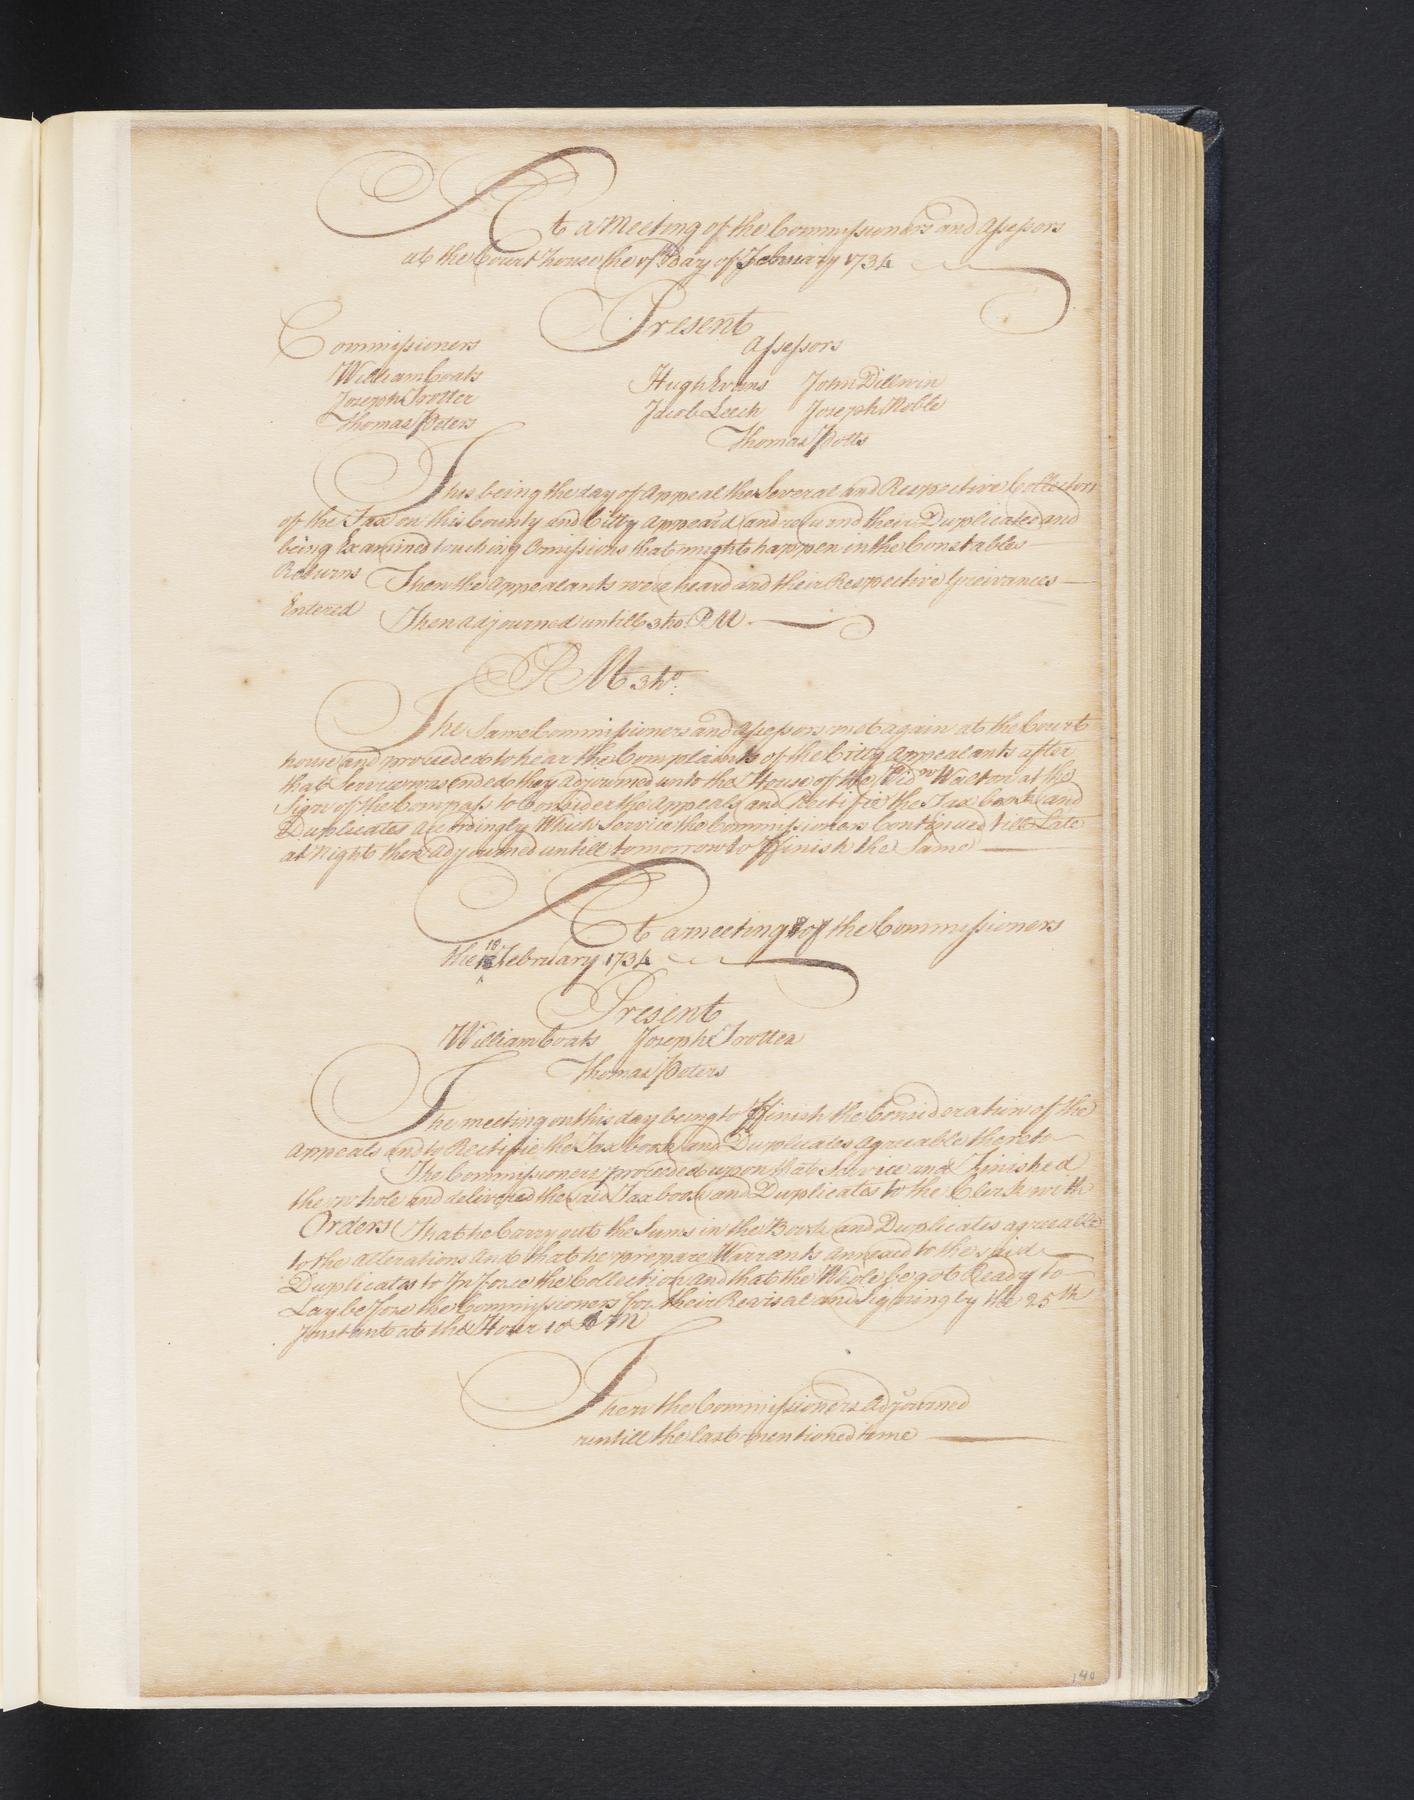 At a Meeting of the Commissioners and Assessors
at the Court house the Day of February 1734
Present
Commissioners
Assessors
William Coats
Hugh Evans John Dillwin
Joseph Trotter
Jacob Leech Joseph Noble
Thomas Peters
Thomas Potts
This being the day of Appeal the Several and Respective Collectors
of the Tax on this County and Citty Appeard and returnd their Duplicates and
being Examined touching Omissions that might happen in the Constables
Returns Then the Appealants were heard and their Respective Greivances
Entered Then Adjourned untill 3 ho. P M
P M 3 ho:
The Same Commissioners and Assessors met again at the Court
house and proceeded to hear the Complaints of the Citty Appealants after
that Service was Ended they Adjourned unto the House of the Widw Watson at the
Sign of the Compass to Consider the Appeals and Rectifie the Tax book and
Duplicates Accordingly Which Service the Commissioners Continued till Late
at Night then Adjourned untill tomorrow to ffinish the Same
At a meeting of the Commissioners
the 18 February 1734
Present
William Coats Joseph Trotter
Thomas Peters
The meeting on this day being to ffinish the Consideration of the
Appeals and to Rectifie the Tax book and Duplicates Agreeable thereto
The Commissioners proceeded upon that Service and Finished
the whole and delivered the said Tax book and Duplicates to the Clerk with
Orders That he Carry out the Sums in the Book and Duplicates agreeable
to the Alterations And that he prepare Warrants Annexed to the said
Duplicates to Inforce the Collection and that the Whole be got Ready to
Lay before the Commissioners for their Revisal and Signing by the 25th
Instant at the Hour 10 A M
Then the Commissioners Adjourned
untill the last mentioned time
140